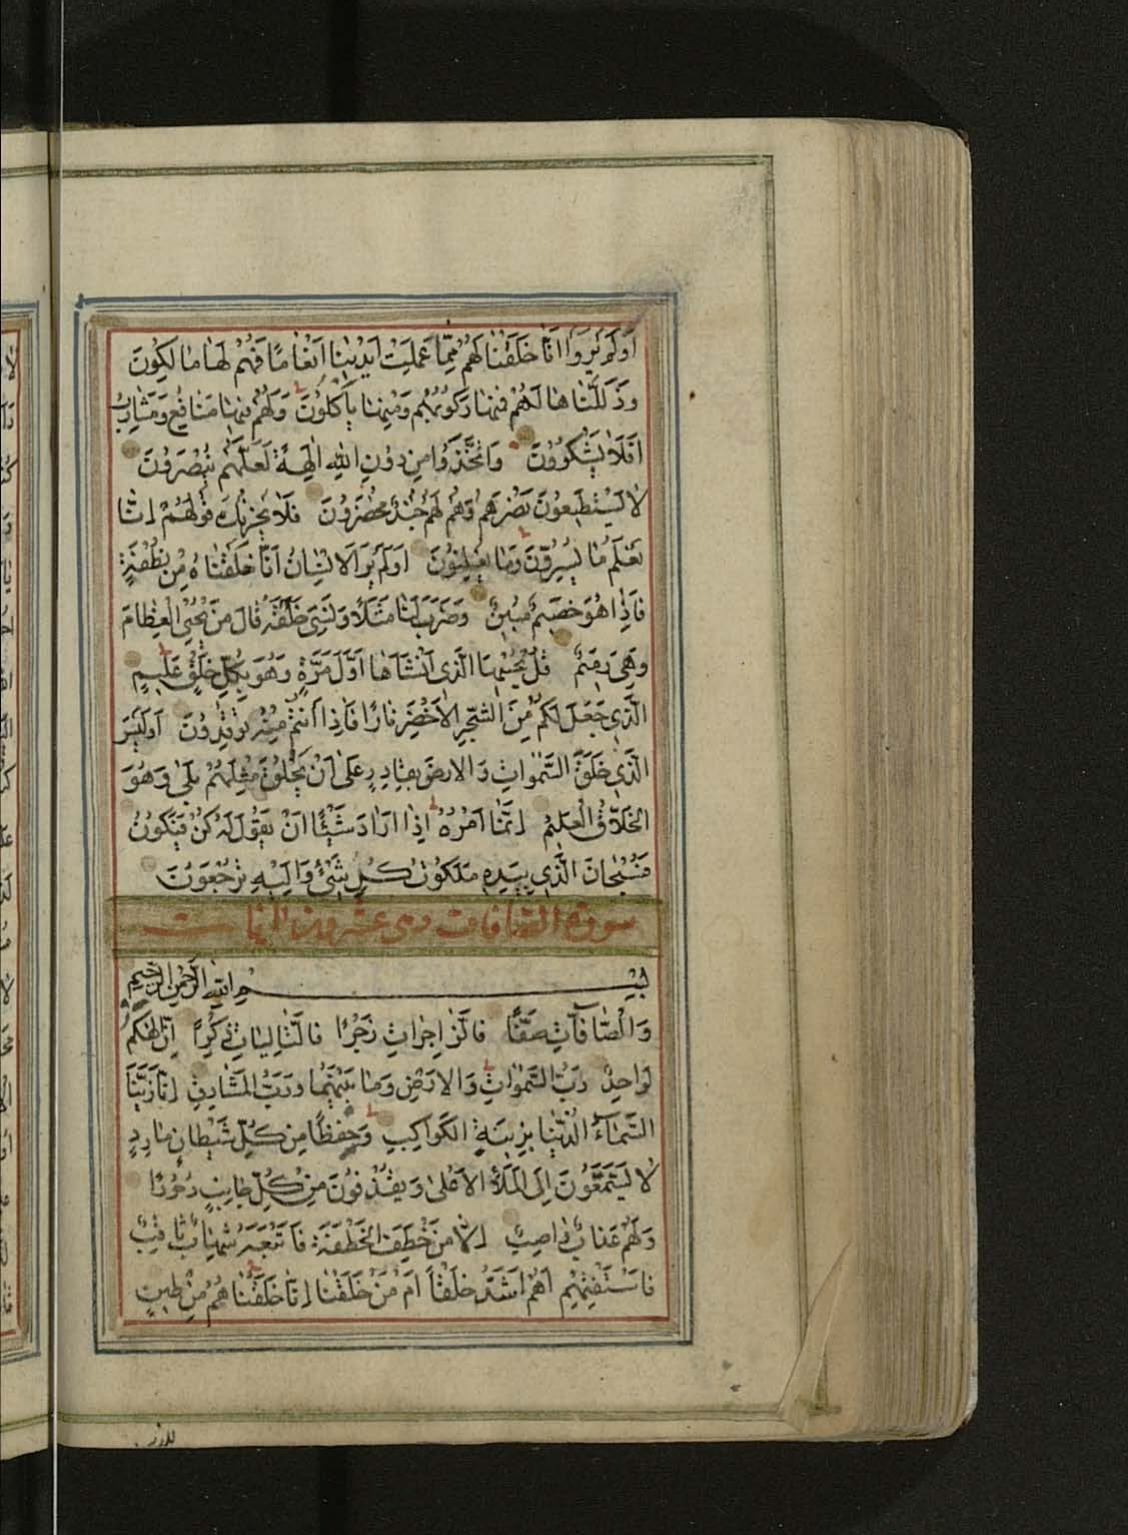 أَوَلَمْ يَرَوْا أَنَّا خَلَقْنَا لَهُمْ مِمَّا عَمِلَتْ أَيْدِينَا أَنْعَامًا فَهُمْ لَهَا مَالِكُونَ
وَذَلَّلْنَاهَا لَهُمْ فَمِنْهَا رَكُوبُهُمْ وَمِنْهَا يَأْكُلُونَ وَلَهُمْ فِيهَا مَنَافِعُ وَمَشَارِبُ
أَفَلَا يَشْكُرُونَ وَاتَّخَذُوا مِنْ دُونِ اللّٰهِ اٰلِهَةً لَعَلَّهُمْ يُنْصَرُونَ
لَا يَسْتَطِيعُونَ نَصْرَهُمْ وَهُمْ لَهُمْ جُنْدٌ مُحْضَرُونَ فَلَا يَحْزُنْكَ قَوْلُهُمْ إِنَّا
نَعْلَمُ مَا يُسِرُّونَ وَمَا يُعْلِنُونَ أَوَلَمْ يَرَ الْاِنْسَانُ أَنَّا خَلَقْنَاهُ مِنْ نُطْفَةٍ
فَاِذَا هُوَ خَصِيمٌ مُبِينٌ وَضَرَبَ لَنَا مَثَلًا وَنَسِيَ خَلْقَهُ قَالَ مَنْ يُحْيِي الْعِظَامَ
وَهِيَ رَمِيمٌ قُلْ يُحْيِيهَا الَّذِي أَنْشَأَهَا أَوَّلَ مَرَّةٍ وَهُوَ بِكُلِّ خَلْقٍ عَلِيمٌ
الَّذِي جَعَلَ لَكُمْ مِنَ الشَّجَرِ الْأَخْضَرِ نَارًا فَاِذَا أَنْتُمْ مِنْهُ تُوقِدُونَ أَوَلَيْسَ
الَّذِي خَلَقَ السَّمٰوَاتِ وَالْأَرْضَ بِقَادِرٍ عَلَىٰ أَنْ يَخْلُقَ مِثْلَهُمْ بَلَىٰ وَهُوَ
الْخَلَّاقُ الْعَلِيمُ إِنَّمَا أَمْرُهُ إِذَا أَرَادَ شَيْئًا أَنْ يَقُولَ لَهُ كُنْ فَيَكُونُ
فَسُبْحَانَ الَّذِي بِيَدِهِ مَلَكُوتُ كُلِّ شَيْءٍ وَإِلَيْهِ تُرْجَعُونَ
سورة الصافات
بِسْمِ اللّٰهِ الرَّحْمٰنِ الرَّحِيمِ
وَالصَّافَّاتِ صَفًّا فَالزَّاجِرَاتِ زَجْرًا فَالتَّالِيَاتِ ذِكْرًا إِنَّ إِلٰهَكُمْ
لَوَاحِدٌ رَبُّ السَّمٰوَاتِ وَالْأَرْضِ وَمَا بَيْنَهُمَا وَرَبُّ الْمَشَارِقِ إِنَّا زَيَّنَّا
السَّمَاءَ الدُّنْيَا بِزِينَةٍ الْكَوَاكِبِ وَحِفْظًا مِنْ كُلِّ شَيْطَانٍ مَارِدٍ
لَا يَسَّمَّعُونَ إِلَى الْمَلَإِ الْأَعْلَىٰ وَيُقْذَفُونَ مِنْ كُلِّ جَانِبٍ دُحُورًا
وَلَهُمْ عَذَابٌ وَاصِبٌ إِلَّا مَنْ خَطِفَ الْخَطْفَةَ فَأَتْبَعَهُ شِهَابٌ ثَاقِبٌ
فَاسْتَفْتِهِمْ أَهُمْ أَشَدُّ خَلْقًا أَمْ مَنْ خَلَقْنَا إِنَّا خَلَقْنَاهُمْ مِنْ طِينٍ